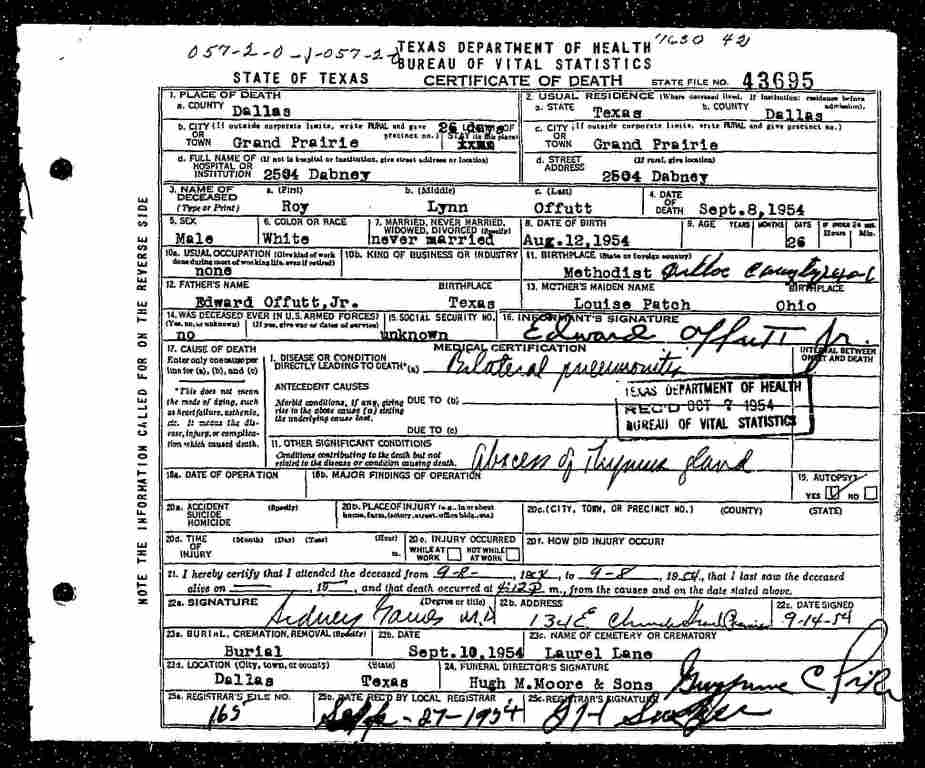 057-2-0-1-057-2-0
TEXAS DEPARTMENT OF HEALTH
BUREAU OF VITAL STATISTICS
STATE OF TEXAS
CERTIFICATE OF DEATH
STATE FILE NO. 43695
1. PLACE OF DEATH
a. COUNTY Dallas
2. USUAL RESIDENCE (Where deceased lived. If institution: residence before admission).
a. STATE Texas
b. COUNTY Dallas
b. CITY (If outside corporate limits, write RURAL and give precinct no.)
OR
TOWN Grand Prairie
26 days
c. CITY (If outside corporate limits, write RURAL and give precinct no.)
OR
TOWN Grand Prairie
d. FULL NAME OF (If not in hospital or institution, give street address or location)
HOSPITAL OR
INSTITUTION 2504 Dabney
d. STREET (If rural, give location)
ADDRESS 2504 Dabney
3. NAME OF DECEASED (Type or Print)
a. (First) Roy
b. (Middle) Lynn
c. (Last) Offutt
4. DATE OF DEATH Sept.8,1954
5. SEX Male
6. COLOR OR RACE White
7. MARRIED, NEVER MARRIED, WIDOWED, DIVORCED (Specify) never married
8. DATE OF BIRTH Aug.12,1954
9. AGE YEARS MONTHS DAYS 26 Hours Min.
10a. USUAL OCCUPATION (Give kind of work done during most of working life, even if retired) none
10b. KIND OF BUSINESS OR INDUSTRY
11. BIRTHPLACE (State or foreign country) Methodist
12. FATHER'S NAME Edward Offutt,Jr.
BIRTHPLACE Texas
13. MOTHER'S MAIDEN NAME Louise Patch
BIRTHPLACE Ohio
14. WAS DECEASED EVER IN U.S. ARMED FORCES?
(Yes, no, or unknown) (If yes, give war or dates of service)
no
15. SOCIAL SECURITY NO. unknown
16. INFORMANT'S SIGNATURE Edward Offutt Jr.
17. CAUSE OF DEATH
Enter only one cause per line for (a), (b), and (c)
MEDICAL CERTIFICATION
INTERVAL BETWEEN ONSET AND DEATH
I. DISEASE OR CONDITION
DIRECTLY LEADING TO DEATH*(a) Bilateral pneumonitis
*This does not mean the mode of dying, such as heart failure, asthenia, etc. It means the disease, injury, or complication which caused death.
ANTECEDENT CAUSES
Morbid conditions, if any, giving rise to the above cause (a) stating the underlying cause last.
DUE TO (b)
DUE TO (c)
TEXAS DEPARTMENT OF HEALTH
REC'D OCT 7 1954
BUREAU OF VITAL STATISTICS
11. OTHER SIGNIFICANT CONDITIONS
Conditions contributing to the death but not related to the disease or condition causing death.
Abscess of Thymus gland
18a. DATE OF OPERATION
18b. MAJOR FINDINGS OF OPERATION
19. AUTOPSY?
YES NO
20a. ACCIDENT (Specify)
SUICIDE
HOMICIDE
20b. PLACE OF INJURY (e.g., in or about home, farm, factory, street, office bldg., etc.)
20c. (CITY, TOWN, OR PRECINCT NO.) (COUNTY) (STATE)
20d. TIME OF INJURY (Month) (Day) (Year) (Hour) m.
20e. INJURY OCCURRED
WHILE AT WORK NOT WHILE AT WORK
20f. HOW DID INJURY OCCUR?
21. I hereby certify that I attended the deceased from 9-8-, to 9-8, 1954, that I last saw the deceased
alive on , 19 , and that death occurred at 4:12P m., from the causes and on the date stated above.
22a. SIGNATURE (Degree or title) Sidney M.D.
22b. ADDRESS 134 E Church Grand Prairie
22c. DATE SIGNED 9-14-54
23a. BURIAL, CREMATION, REMOVAL (Specify) Burial
23b. DATE Sept.10,1954
23c. NAME OF CEMETERY OR CREMATORY Laurel Lane
23d. LOCATION (City, town, or county) (State) Dallas Texas
24. FUNERAL DIRECTOR'S SIGNATURE
Hugh M.Moore & Sons
25a. REGISTRAR'S FILE NO. 165
25b. DATE REC'D BY LOCAL REGISTRAR Sept-27-1954
25c. REGISTRAR'S SIGNATURE
NOTE THE INFORMATION CALLED FOR ON THE REVERSE SIDE